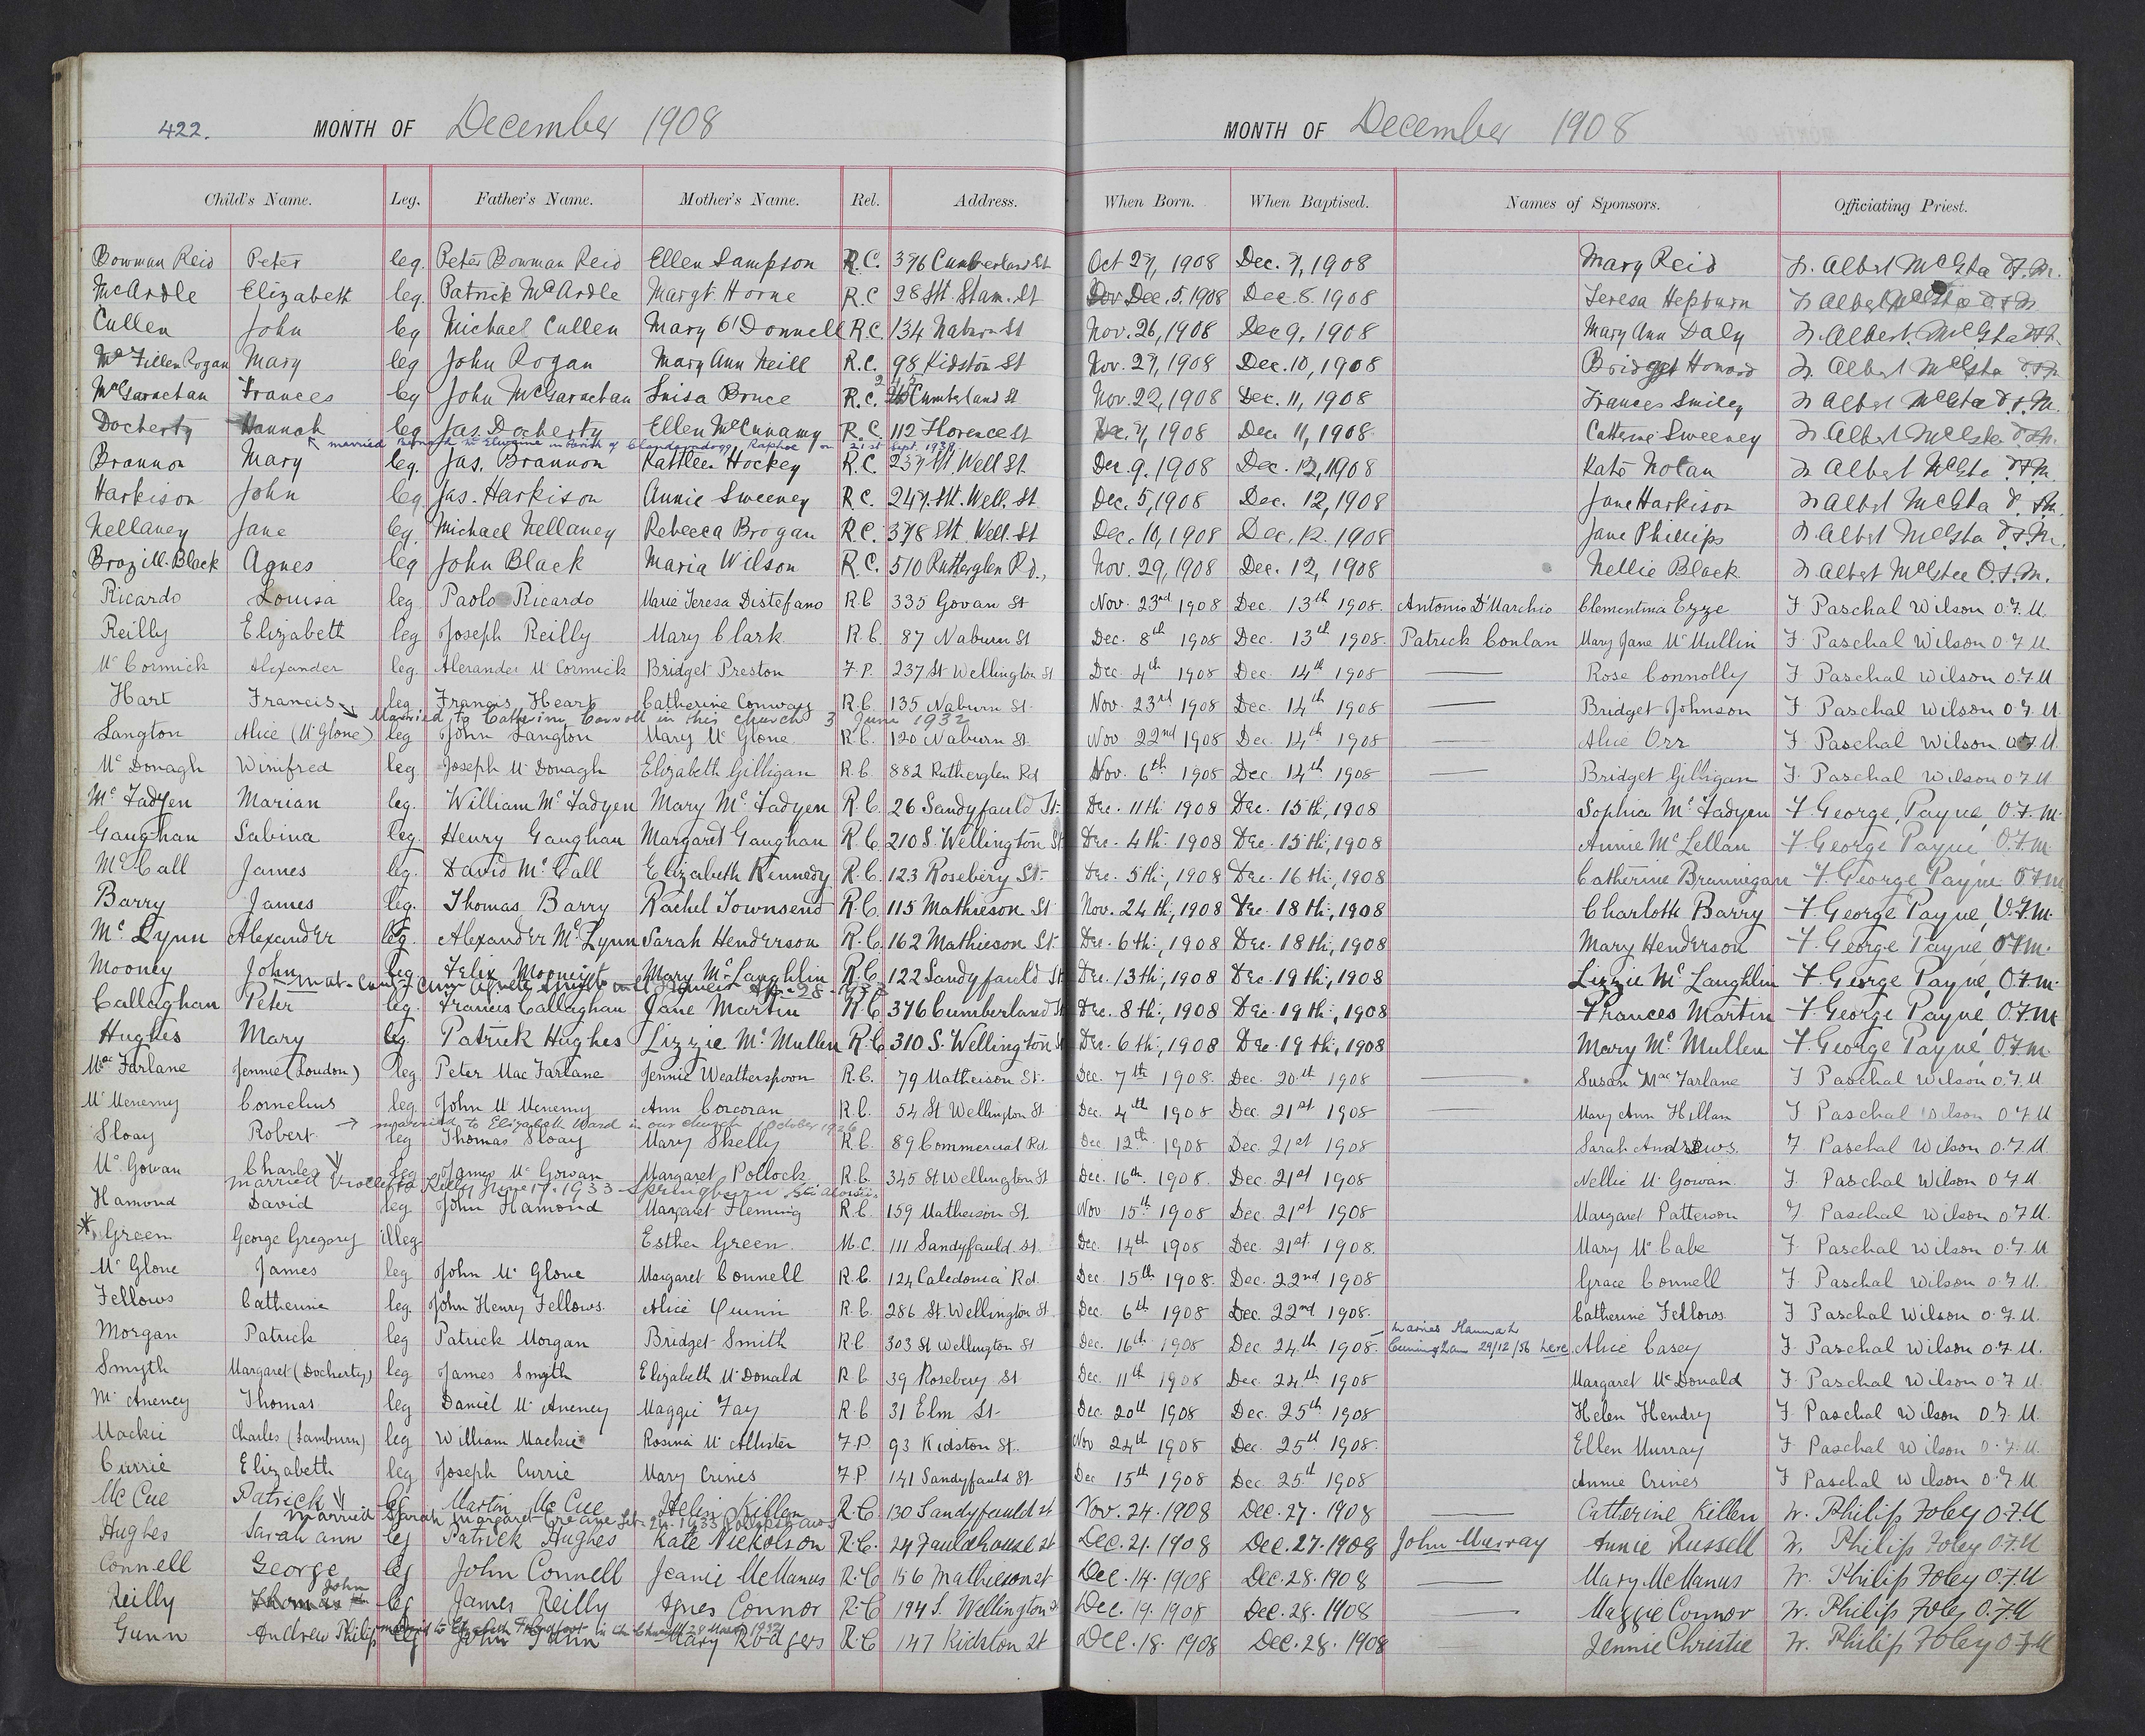 422. MONTH OF December 1908 MONTH OF December 1908
Child's Name. Leg. Father's Name. Mother's Name. Rel. Address. When Born. When Baptised. Names of Sponsors. Officiating Priest.
Bowman Reid Peter leg. Peter Bowman Reid Ellen Sampson R.C. 376 Cumberland St Oct 27, 1908 Dec. 7, 1908 Mary Reid Fr. Albert McGhee O.F.M.
McArdle Elizabeth leg. Patrick McArdle Margt. Horne R.C 28 Sth. Stam. St Dec. 5. 1908 Dec. 8. 1908 Teresa Hepburn Fr Albert McGhee O.F.M
Cullen John leg Michael Cullen Mary O'Donnell R.C. 134 Naburn St Nov. 26, 1908 Dec 9, 1908 Mary Ann Daly Fr. Albert McGhee O.F.M.
Rogan Mary leg John Rogan Mary Ann Neill R.C. 98 Kidston St Nov. 27, 1908 Dec. 10, 1908 Bridget Howard Fr. Albert McGhee O.F.M
McGarnchan Frances leg John McGarnchan Luisa Bruce R.C. Cumberland St Nov. 22, 1908 Dec. 11, 1908 Frances Smiley Fr Albert McGhee O.F.M.
Docherty Hannah leg Jas. Docherty Ellen McCunamy R.C. 112 Florence St Dec. 7, 1908 Dec 11, 1908. Catherine Sweeney Fr. Albert McGhee O.F.M.
married in Parish of Raphoe on 21st Sept. 1939
Brannon Mary leg. Jas. Brannon Kathleen Hockey R.C. 237 Sth Well St Dec. 9. 1908 Dec. 12, 1908 Kate Nolan Fr Albert McGhee O.F.M.
Harkison John leg Jas. Harkison Annie Sweeney R.C. 247. Sth. Well. St Dec. 5, 1908 Dec. 12, 1908 Jane Harkison Fr Albert McGhee O.F.M.
Nellaney Jane leg. Michael Nellaney Rebecca Brogan R.C. 378 Sth. Well. St Dec. 10, 1908 Dec. 12. 1908 Jane Phillips Fr. Albert McGhee O.F.M.
Brazill. Black Agnes leg John Black Maria Wilson R.C. 510 Rutherglen Rd., Nov. 29, 1908 Dec. 12, 1908 Nellie Black Fr Albert McGhee O.F.M.
Ricardo Louisa leg Paolo Ricardo Marie Teresa Distefano R.C 335 Govan St Nov. 23rd 1908 Dec. 13th 1908. Antonio D'Marchio Clementina Ezze F Paschal Wilson O.F.M.
Reilly Elizabeth leg Joseph Reilly Mary Clark R.C. 87 Naburn St Dec. 8th 1908 Dec. 13th 1908. Patrick Conlan Mary Jane McMullin F. Paschal Wilson O.F.M.
McCormick Alexander leg. Alexander McCormick Bridget Preston F.P. 237 St Wellington St Dec. 4th 1908 Dec. 14th 1908 Rose Connolly F Paschal Wilson O.F.M
Hart Francis leg Francis Heart Catherine Conway R.C. 135 Naburn St. Nov. 23rd 1908 Dec. 14th 1908 Bridget Johnson F Paschal Wilson O.F.M.
Married to Catherine Carroll in this church 3 June 1932
Langton Alice (McGlone) leg John Langton Mary McGlone R.C. 120 Naburn St. Nov 22nd 1908 Dec. 14th 1908 Alice Orr F Paschal Wilson O.F.M.
McDonagh Winifred leg Joseph McDonagh Elizabeth Gilligan R.C. 882 Rutherglen Rd Nov. 6th 1908 Dec. 14th 1908 Bridget Gilligan F. Paschal Wilson O.F.M
McFadyen Marian leg. William McFadyen Mary McFadyen R.C. 26 Sandyfauld St. Dec. 11th 1908 Dec. 15th, 1908 Sophia McFadyen F. George, Payne, O.F.M.
Gaughan Sabina leg. Henry Gaughan Margaret Gaughan R.C. 210 S. Wellington St Dec. 4th. 1908 Dec. 15th, 1908 Annie McLellan F. George Payne, O.F.M.
McCall James leg. David McCall Elizabeth Kennedy R.C. 123 Rosebery St. Dec. 5th, 1908 Dec. 16th, 1908 Catherine Brannigan F. George Payne O.F.M
Barry James leg. Thomas Barry Rachel Townsend R.C. 115 Mathieson St Nov. 24th, 1908 Dec. 18th, 1908 Charlotte Barry F. George Payne, O.F.M.
McLynn Alexander leg. Alexander McLynn Sarah Henderson R.C. 162 Mathieson St. Dec. 6th, 1908 Dec. 18th, 1908 Mary Henderson F. George Payne, O.F.M.
Mooney John leg. Felix Mooney Mary McLaughlin R.C. 122 Sandyfauld St Dec. 13th, 1908 Dec. 19th, 1908 Lizzie McLaughlin F George Payne, O.F.M.
Callaghan Peter leg. Francis Callaghan Jane Martin R.C. 376 Cumberland St Dec. 8th, 1908 Dec. 19th, 1908 Frances Martin F. George Payne, O.F.M
Hughes Mary leg. Patrick Hughes Lizzie McMullen R.C 310 S. Wellington St Dec. 6th, 1908 Dec. 19th, 1908 Mary McMullen F. George Payne, O.F.M.
MacFarlane Jennie (Loudon) leg. Peter MacFarlane Jennie Weatherspoon R.C. 79 Matheison St. Dec. 7th 1908. Dec. 20th 1908 Susan MacFarlane F Paschal Wilson O.F.M
McMenemy Cornelius leg John McMenemy Ann Corcoran R.C. 54 St Wellington St Dec. 4th 1908. Dec. 21st 1908 Mary Ann Hillan F Paschal Wilson O.F.M
married to Elizabeth Ward in our church October 1926
Sloay Robert leg Thomas Sloay Mary Skelly R.C. 89 Commercial Rd Dec 12th 1908 Dec. 21st 1908 Sarah Andrews. F. Paschal Wilson O.F.M.
McGowan Charles leg James McGowan Margaret Pollock R.C. 345 St Wellington St Dec. 16th 1908. Dec. 21st 1908 Nellie McGowan. F. Paschal Wilson O.F.M.
married Violetta Kelly June 17. 1933 Springburn St Aloysius
Hamond David leg John Hamond Margaret Fleming R.C. 159 Matheison St. Nov 15th 1908 Dec. 21st 1908 Margaret Patterson F Paschal Wilson O.F.M.
* Green George Gregory illeg. Esther Green. M.C. 111 Sandyfauld St. Dec. 14th 1908 Dec. 21st 1908. Mary McCabe F. Paschal Wilson O.F.M
McGlone James leg John McGlone Margaret Connell R.C. 124 Caledonia Rd. Dec. 15th 1908. Dec. 22nd 1908 Grace Connell F. Paschal Wilson O.F.M.
Fellows Catherine leg. John Henry Fellows. Alice Quinn R.C. 286 St. Wellington St. Dec. 6th 1908 Dec. 22nd 1908. Catherine Fellows. F Paschal Wilson O.F.M.
Morgan Patrick leg Patrick Morgan Bridget Smith R.C. 303 St Wellington St Dec. 16th 1908 Dec 24th 1908. married Hannah Cunningham 29/12/56 here Alice Casey F. Paschal Wilson O.F.M.
Smyth Margaret (Docherty) leg James Smyth Elizabeth McDonald R.C 39 Rosebery St Dec. 11th 1908 Dec. 24th 1908 Margaret McDonald F. Paschal Wilson O.F.M.
McAneney Thomas leg Daniel McAneney Maggie Fay R.C 31 Elm St. Dec. 20th 1908 Dec. 25th 1908 Helen Hendry F. Paschal Wilson O.F.M.
Mackie Charles (Lamburn) leg William Mackie Rosina McAllister F.P. 93 Kidston St. Nov 24th 1908 Dec. 25th 1908. Ellen Murray F. Paschal Wilson O.F.M.
Currie Elizabeth leg Joseph Currie Mary Crines F.P. 141 Sandyfauld St. Dec 15th 1908 Dec. 25th 1908 Annie Crines F Paschal Wilson O.F.M
McCue Patrick leg Martin McCue Helen Killen R.C 130 Sandyfauld St Nov. 24. 1908 Dec. 27. 1908 Catherine Killen Fr. Philip Foley O.F.M
married Sarah Margaret 1933 Pollokshaws
Hughes Sarah Ann leg Patrick Hughes Kate Nickolson R.C. 24 Fauldhouse St Dec. 21. 1908 Dec. 27. 1908 John Murray Annie Russell Fr. Philip Foley O.F.M
Connell George leg John Connell Jeanie McManus R.C 156 Mathieson St Dec. 14. 1908 Dec. 28. 1908 Mary McManus Fr. Philip Foley O.F.M
Reilly John leg James Reilly Agnes Connor R.C 194 S. Wellington St Dec. 19. 1908 Dec. 28. 1908 Maggie Connor Fr. Philip Foley O.F.M
married to Elizabeth in this Church 28 March 1932
Gunn Andrew Philip leg John Gunn Mary Rodgers R.C 147 Kidston St Dec. 18. 1908 Dec. 28. 1908 Jennie Christie Fr. Philip Foley O.F.M